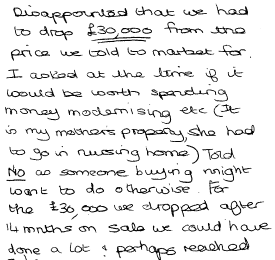 Disappointed that we had
to drop £30,000 from the
price we told to market for.
I asked at the time if it
would be worth spending
money modernising etc (It
is my mothers property, she had
to go in nursing home) Told
NO as someone buying might
want to do otherwise. For
the £30,000 we dropped after
14 mnths on sale we could have
done a lot & perhaps reached